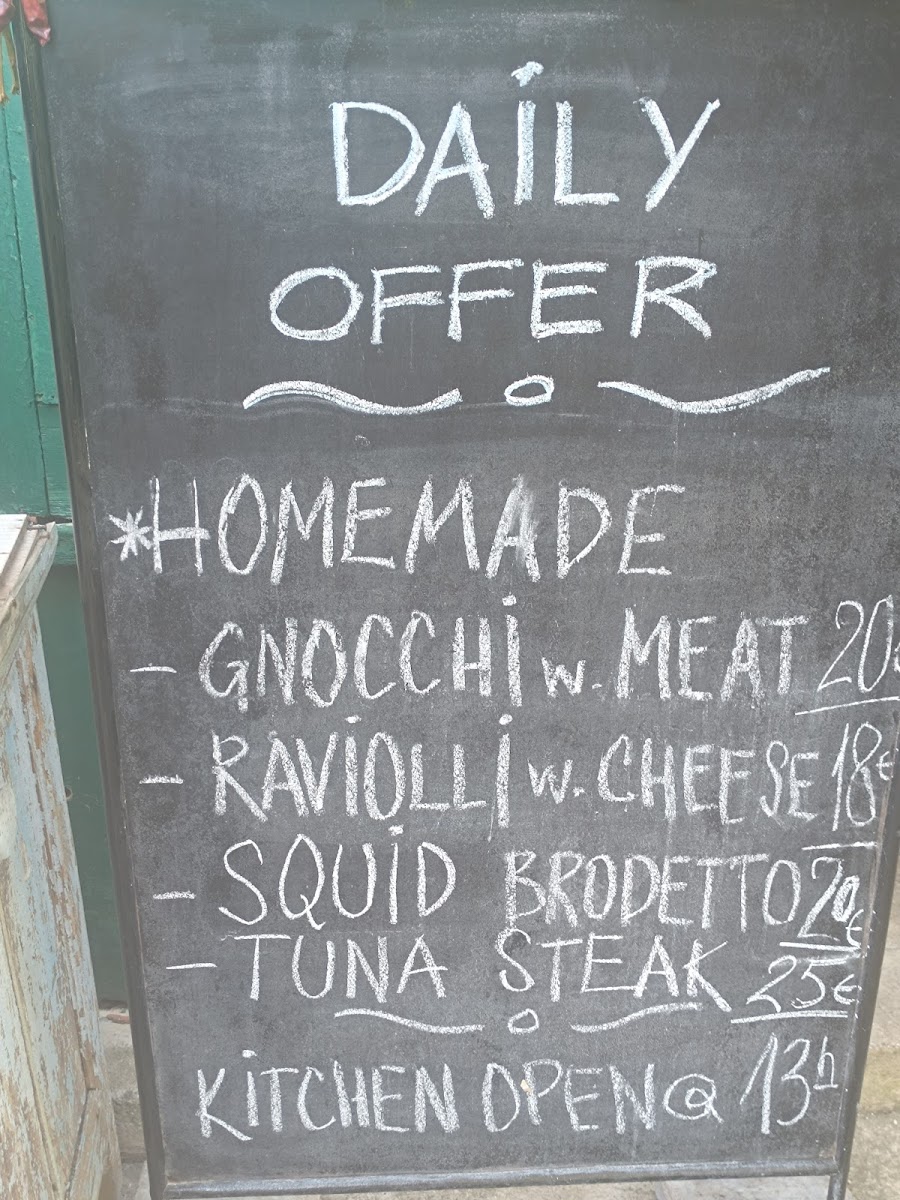 DAILY
OFFER
*HOMEMADE
- GNOCCHI w. MEAT 20€
- RAVIOLLI w. CHEESE 18€
- SQUID BRODETTO 20€
- TUNA STEAK 25€
KITCHEN OPEN @ 13h